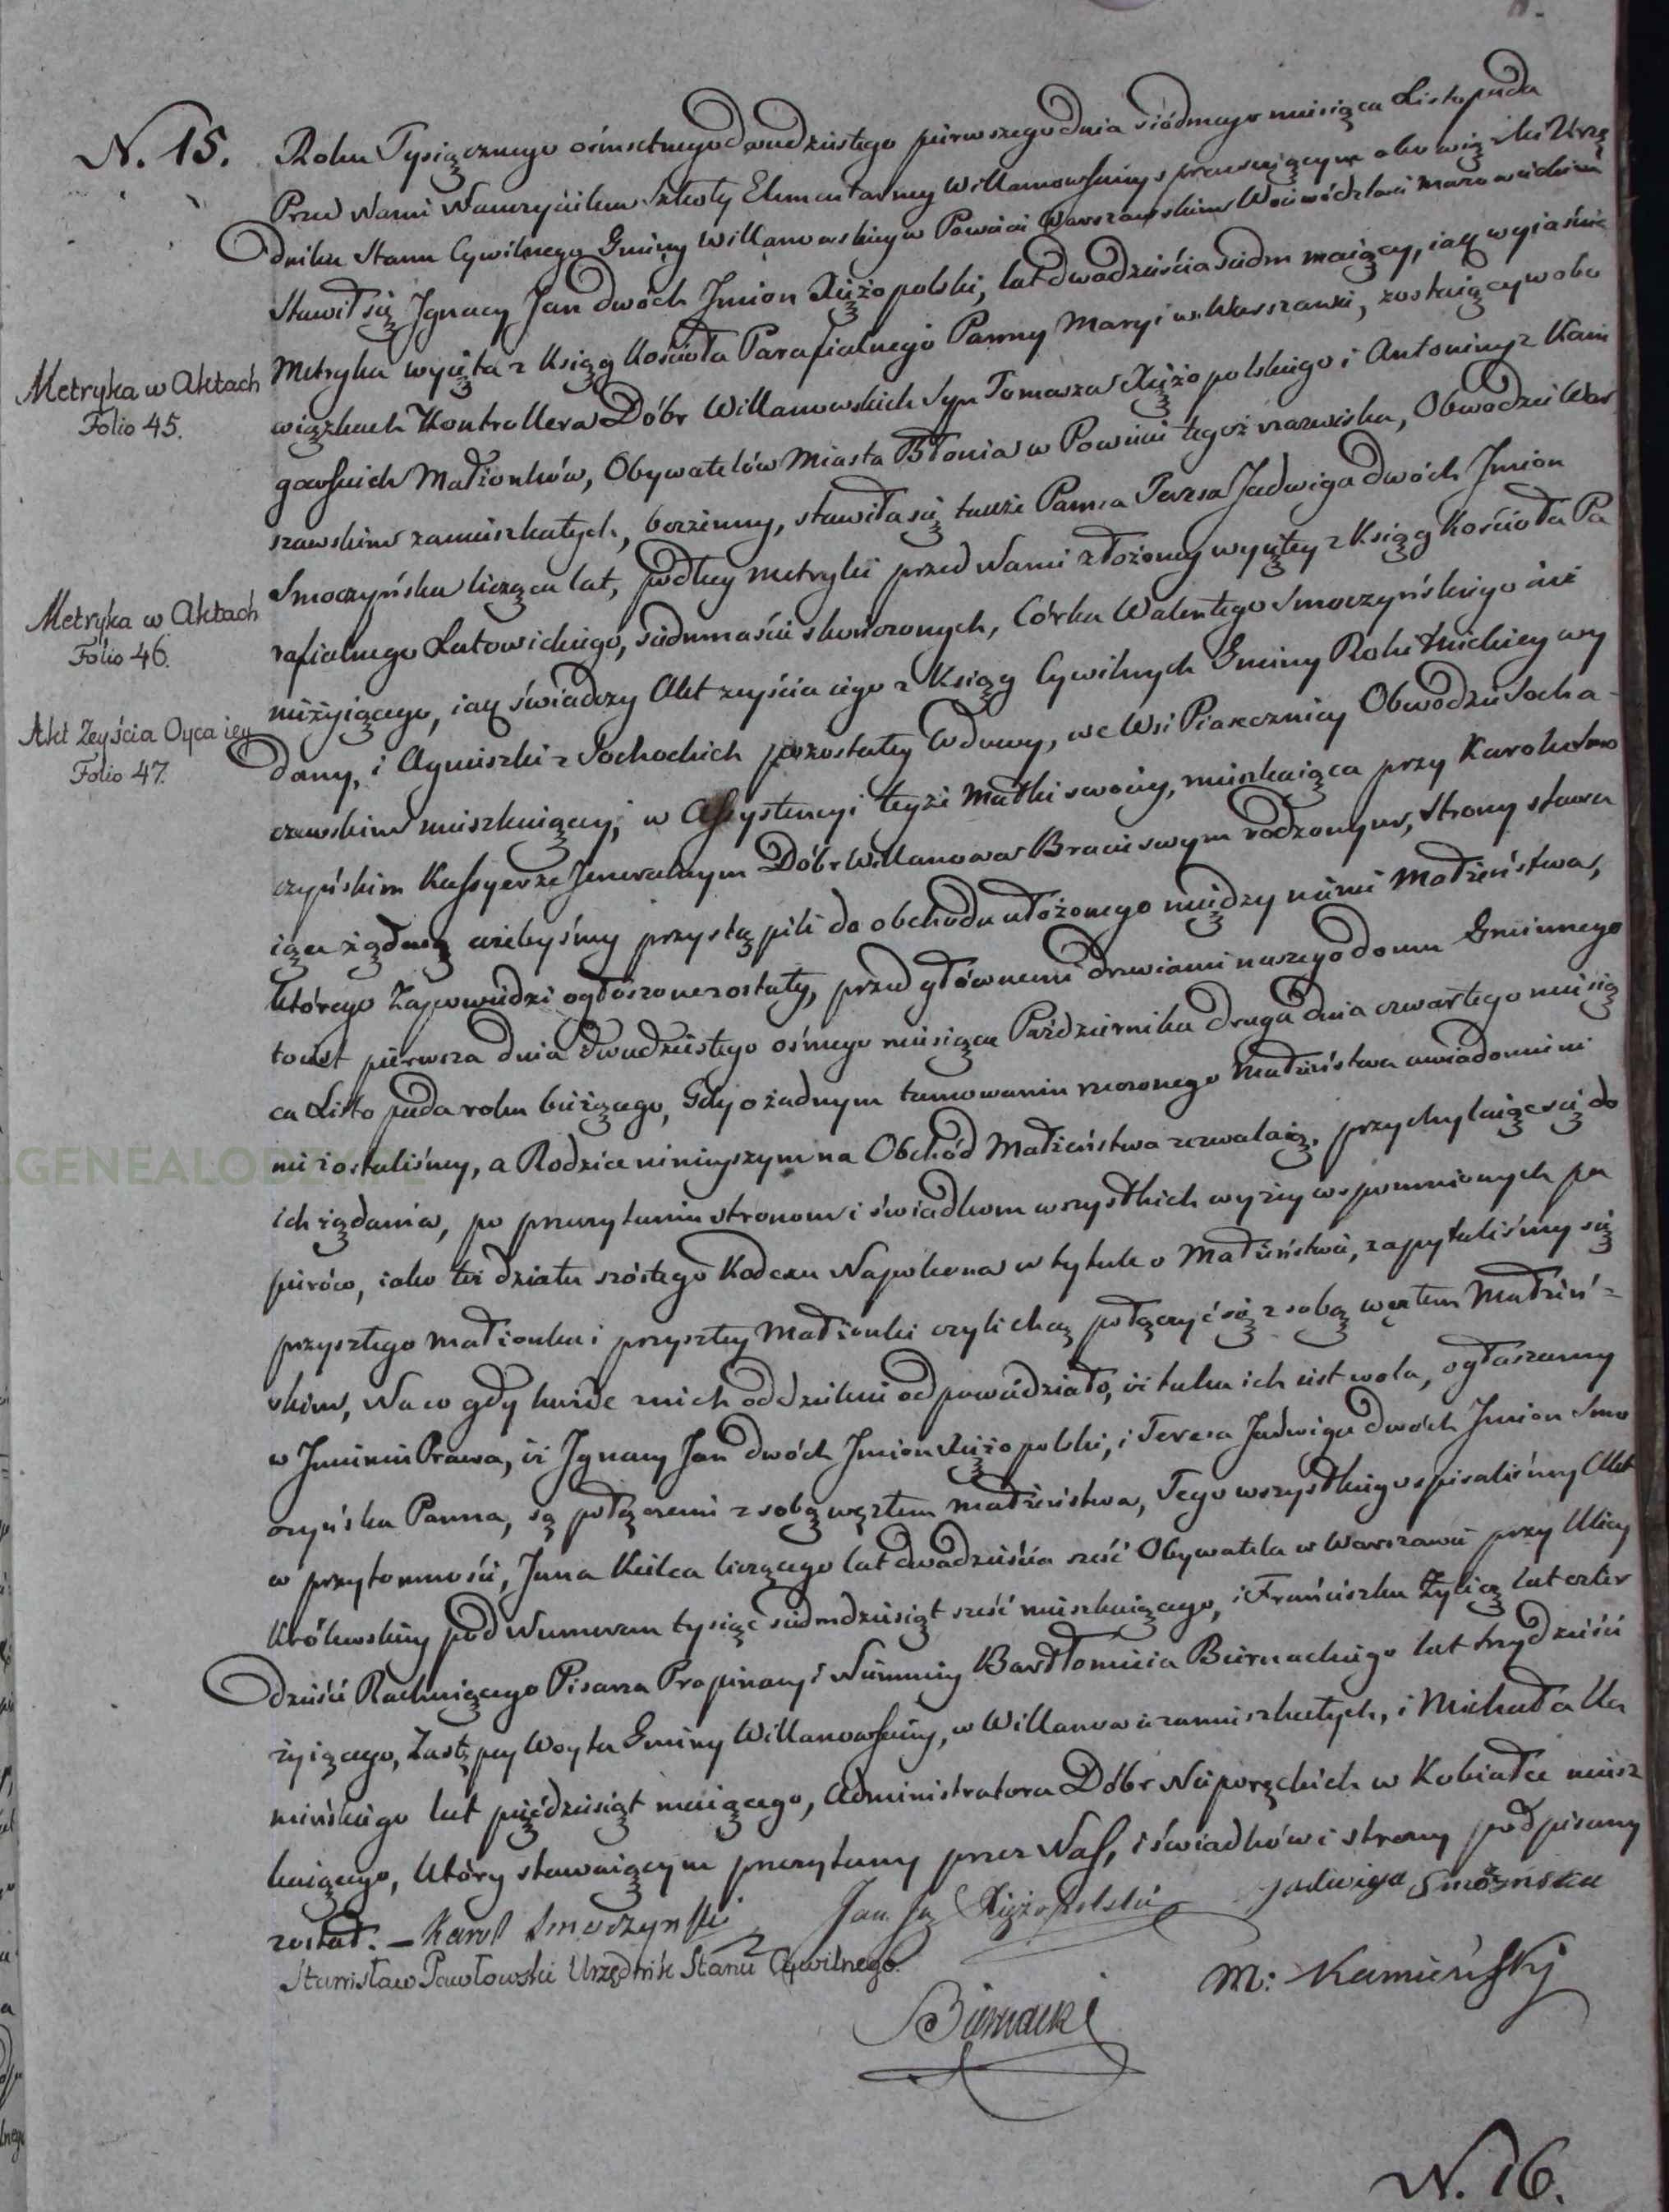 N. 15.
Roku Tysiącznego ośmsetnego dwudziestego pierwszego dnia siódmego miesiąca Listopada
Przed Nami Nauczycielem Szkoły Elementarney Willanowskiey sprawuiącym obowiązki Urzę
dnika Stanu Cywilnego Gminy Willanowskiey w Powiecie Warszawskim Woiewództwie Mazowieckim
Stawił się Ignacy Jan dwóch Imion Xiężopolski, lat dwadzieścia siedm maiący, iak wyiaśnia
Metryka wyięta z Ksiąg Kościoła Parafialnego Panny Maryi w Warszawie, zostaiący w obo
Metryka w Aktach
Folio 45.
wiązkach Kontrollera Dóbr Willanowskich Syn Tomasza Xiężopolskiego i Antoniny z Kam
gowskich Małżonków, Obywatelów Miasta Błonia w Powiecie tegoż nazwiska, Obwodzie War
szawskim zamieszkałych, bezżenny, stawiła się także Panna Teresa Jadwiga dwóch Imion
Smoczyńska licząca lat, podług metryki przed Nami złożoney wyiętey z Ksiąg Kościoła Pa
Metryka w Aktach
Folio 46.
rafialnego Latowickiego, siedmnaście skończonych, Córka Walentego Smoczyńskiego iuż
nieżyiącego, iak świadczy Akt zeyścia iego z Ksiąg Cywilnych Gminy Rokitnickiey wy
Akt Zeyścia Oyca iey
Folio 47.
dany, i Agnieszki z Sochockich pozostałey Wdowy, we Wsi Piasecznicy Obwodzie Socha-
czewskim mieszkaiącey, w Assystencyi teyże Matki swoiey, mieszkaiąca przy Karolu Smo
czyńskim Kassyerze Jeneralnym Dóbr Willanowa Bracie swym rodzonym, Strony stawa
iące żądaią ażebyśmy przystąpili do obchodu ułożonego między niemi Małżeństwa,
którego Zapowiedzi ogłoszone zostały, przed głównemi drzwiami naszego domu Gminnego
to iest pierwsza dnia dwudziestego ósmego miesiąca Października druga dnia czwartego miesią
ca Listopada roku bieżącego, Gdy o żadnym tamowaniu rzeczonego Małżeństwa uwiadomieni
nie zostaliśmy, a Rodzice niniejszym na Obchód Małżeństwa zezwalaią, przychylaiąc się do
ich żądania, po przeczytaniu stronom i świadkom wszystkich wyżey wspomnionych pa
pierów, iako też działu szóstego Kodexu Napoleona w tytule o Małżeństwie, zapytaliśmy się
przyszłego małżonka i przyszłey Małżonki czyli chcą połączyć się z sobą węzłem Małżeń-
skim, Na co gdy każde z nich oddzielnie odpowiedziało, iż taka ich iest wola, ogłaszamy
w Imieniu Prawa, iż Ignacy Jan dwóch Imion Xiężopolski, i Teresa Jadwiga dwóch Imion Smo
czyńska Panna, są połączeni z sobą węzłem małżeństwa, Tego wszystkiego spisaliśmy Akt
w przytomności, Jana Keilca liczącego lat dwadzieścia sześć Obywatela w Warszawie przy Ulicy
Królewskiey pod Numerem tysiąc siedmdziesiąt sześć mieszkaiącego, i Franciszka Zylicz lat czter
dzieści Rachuiącego Pisarza Propinacyi Niemniey Bartłomieia Biernackiego lat trzydzieści
żyiącego, Zastępcy Woyta Gminy Willanowskiey, w Willanowie zamieszkałych, i Michała Ka
mińskiego lat pięćdziesiąt maiącego, Administratora Dóbr Nieporęckich w Kobiałce miesz
kaiącego, który stawaiącym przeczytany przez Nas, i świadków i strony podpisany
został. — Karol Smoczyński Jan Ig Xiężopolski Jadwiga Smoczyńska
Stanisław Pawłowski Urzędnik Stanu Cywilnego.
M: Kamieński
Biernacki
N. 16.
GENEALODZY.PL